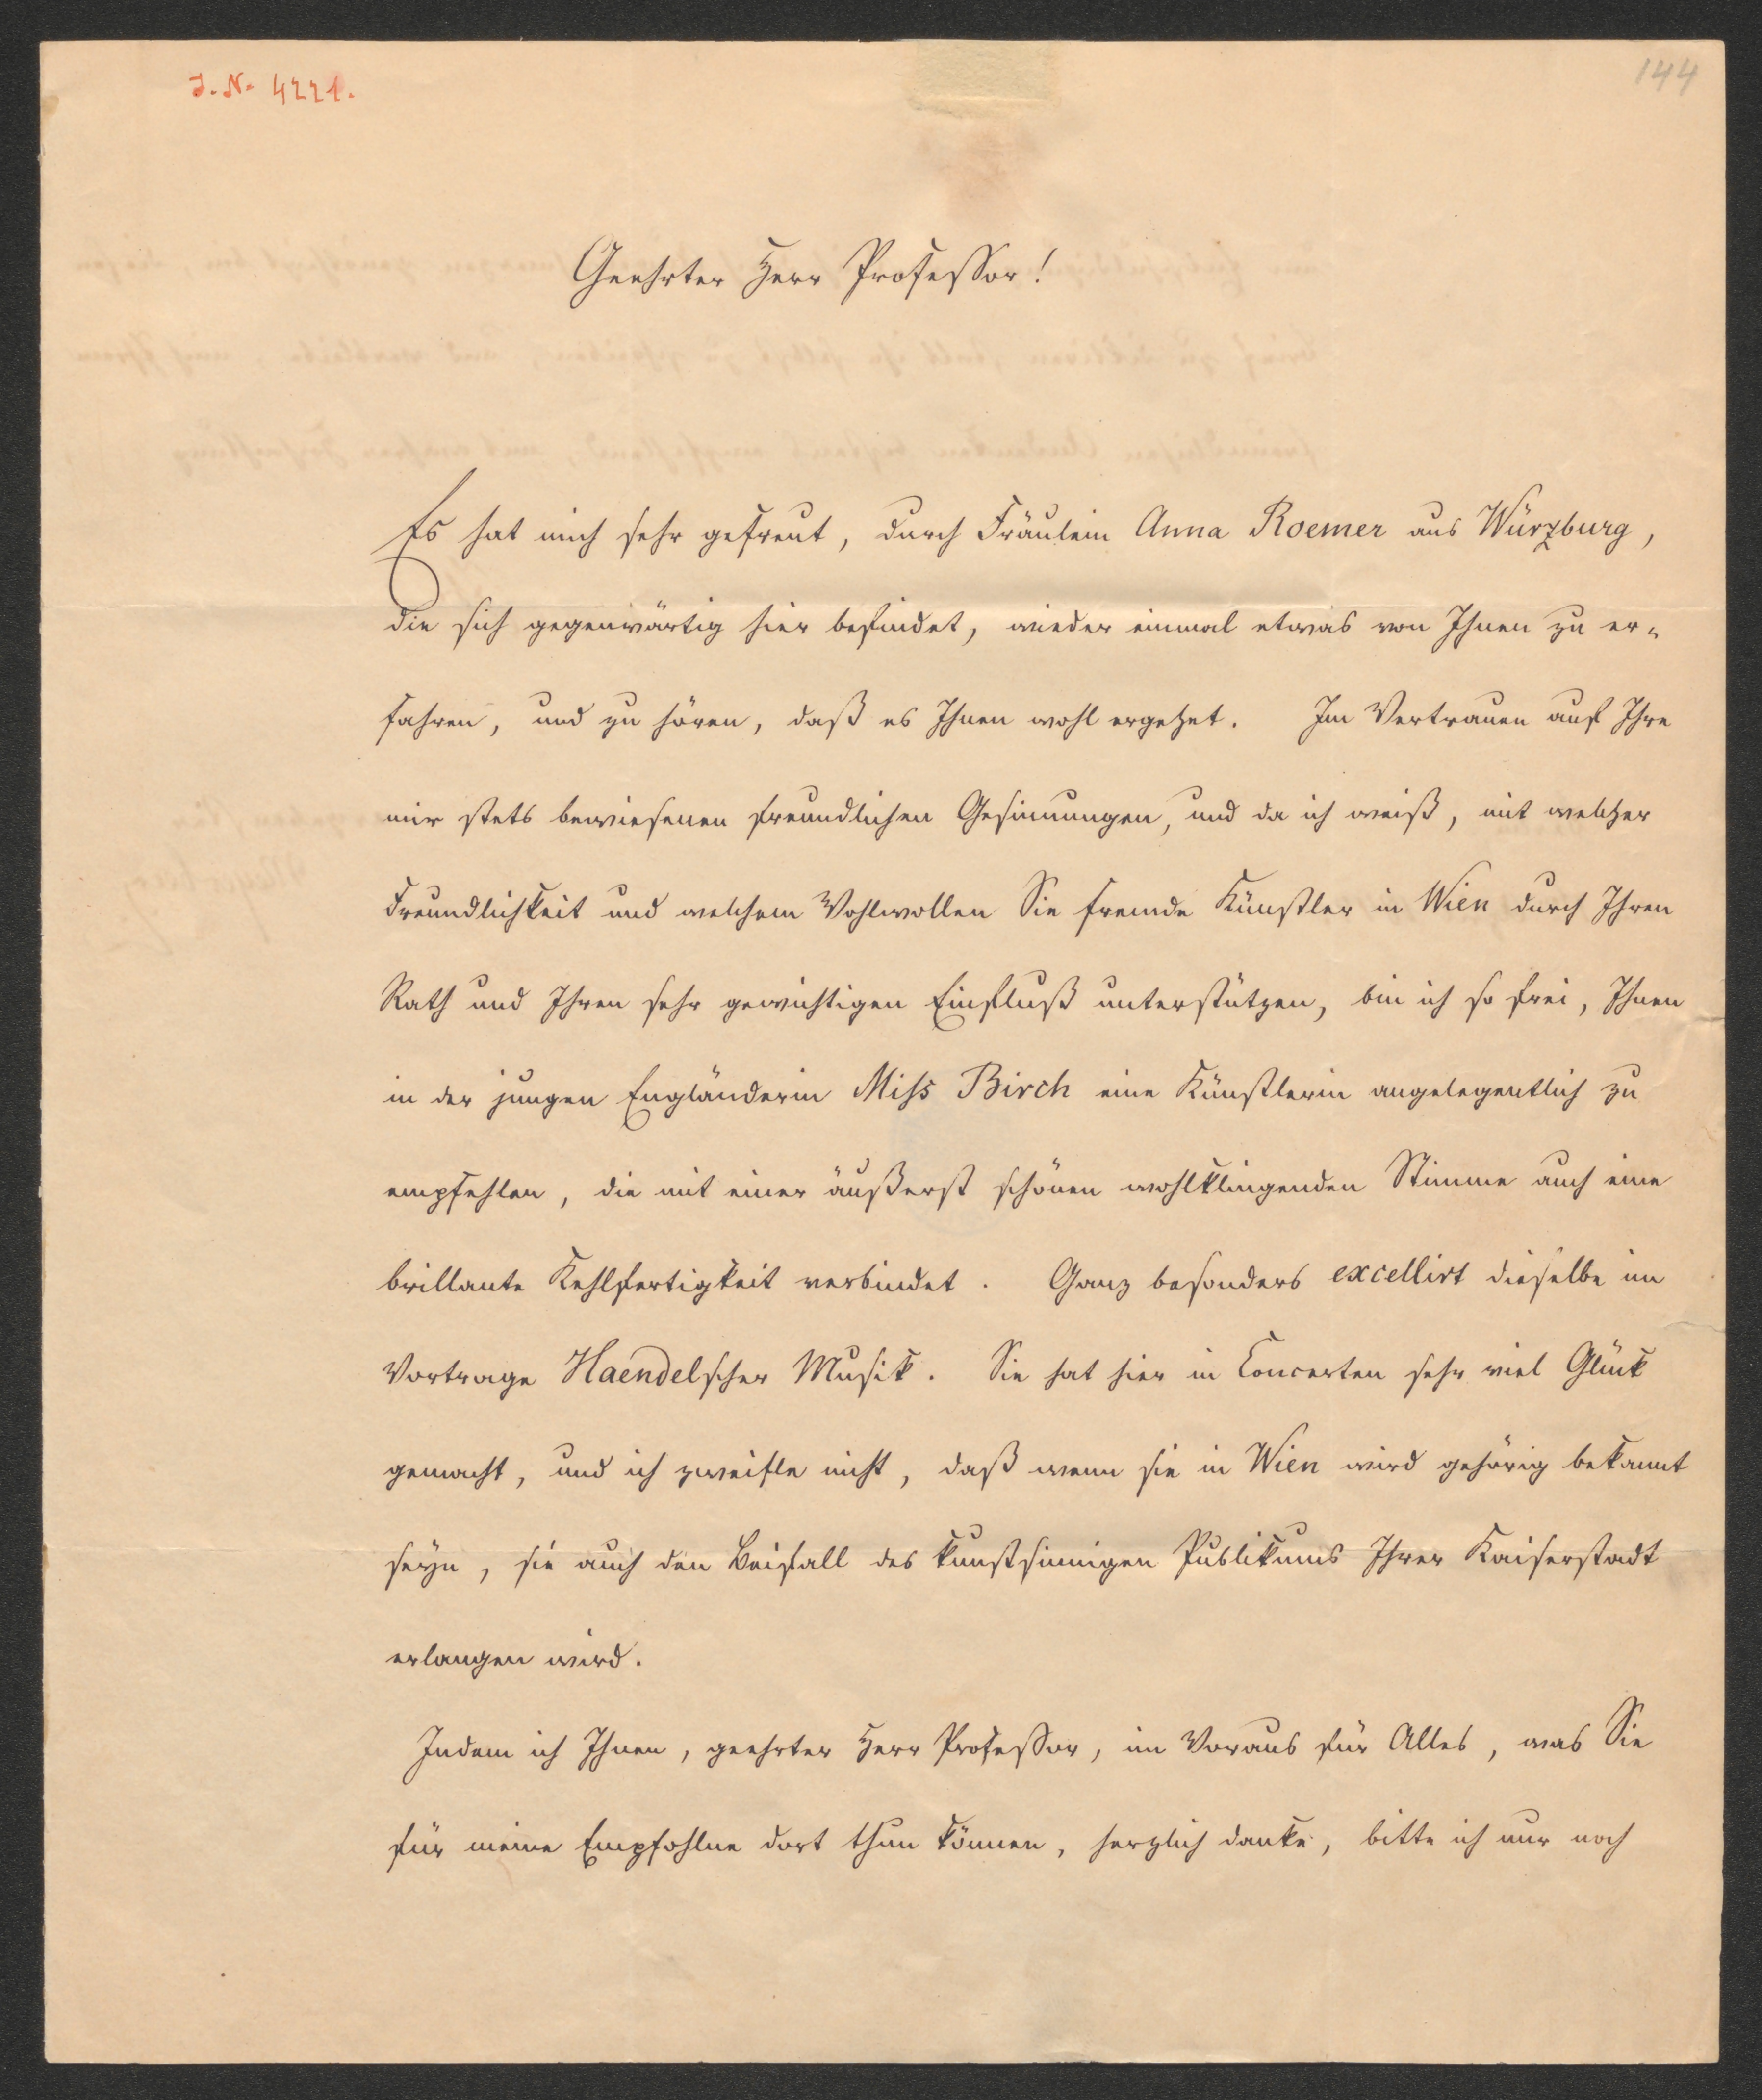 J. N. 4221.
144
Geehrter Herr Professor!
Es hat mich sehr gefreut, durch Fräulein Anna Roemer aus Würzburg,
die sich gegenwärtig hier befindet, wieder einmal etwas von Ihnen zu er-
fahren, und zu hören, daß es Ihnen wohl ergehet. Im Vertrauen auf Ihre
mir stets bewiesenen freundlichen Gesinnungen, und da ich weiß, mit welcher
Freundlichkeit und welchem Wohlwollen Sie fremde Künstler in Wien durch Ihren
Rath und Ihren sehr gewichtigen Einfluß unterstützen, bin ich so frei, Ihnen
in der jungen Engländerin Miss Birch eine Künstlerin angelegentlich zu
empfehlen, die mit einer äußerst schönen wohlklingenden Stimme auch eine
brillante Kehlfertigkeit verbindet. Ganz besonders excellirt dieselbe im
Vortrage Haendelscher Musik. Sie hat hier in Concerten sehr viel Glück
gemacht, und ich zweifle nicht, daß wenn sie in Wien wird gehörig bekannt
seyn, sie auch den Beifall des kunstsinnigen Publikums Ihrer Kaiserstadt
erlangen wird.
Indem ich Ihnen, geehrter Herr Professor, im Voraus für Alles, was Sie
für meine Empfohlne dort thun können, herzlich danke, bitte ich nur noch